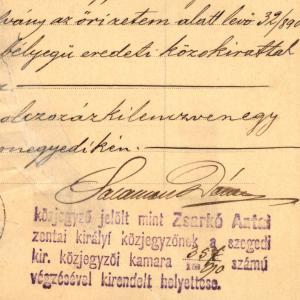 vány az őrizetem alatt levő 32/890
bélyegű eredeti közokirattal
olczszázkilenczvenegy
negyedikén.
közjegyző jelölt mint Zsarkó Antal
zentai királyi közjegyzőnek a szegedi
kir. közjegyzői kamara 557/90 számú
végzésével kirendelt helyettese.